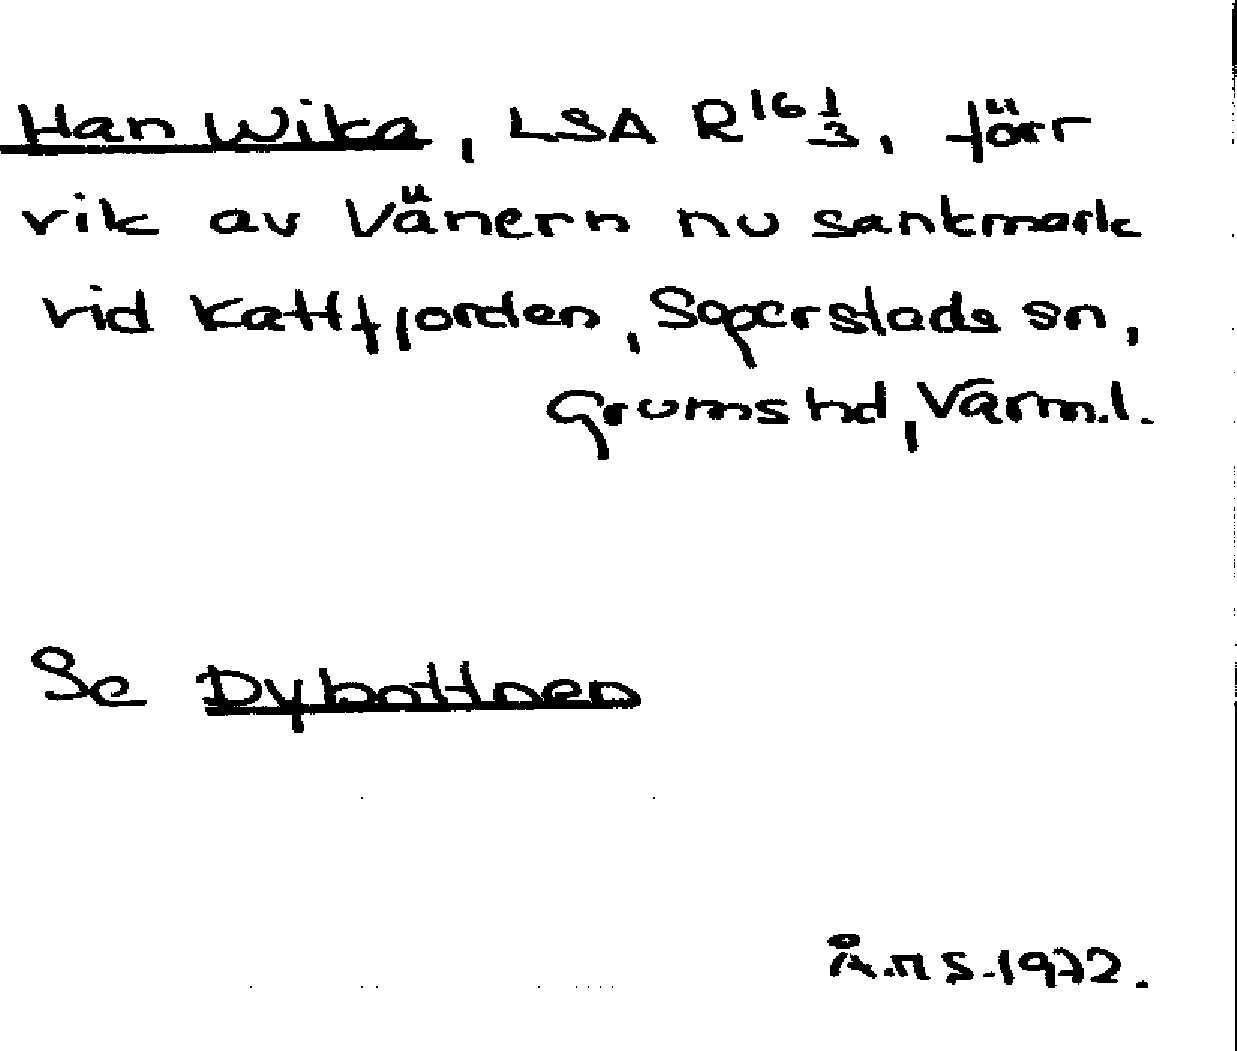 Han Wika, LSA R 16 1/3, förr
vik av Vänern nu sankmark
vid Kattfjorden, Segerstads sn,
Grums hd, Värml.
Se Dybottnen
Å.M S. 1972.